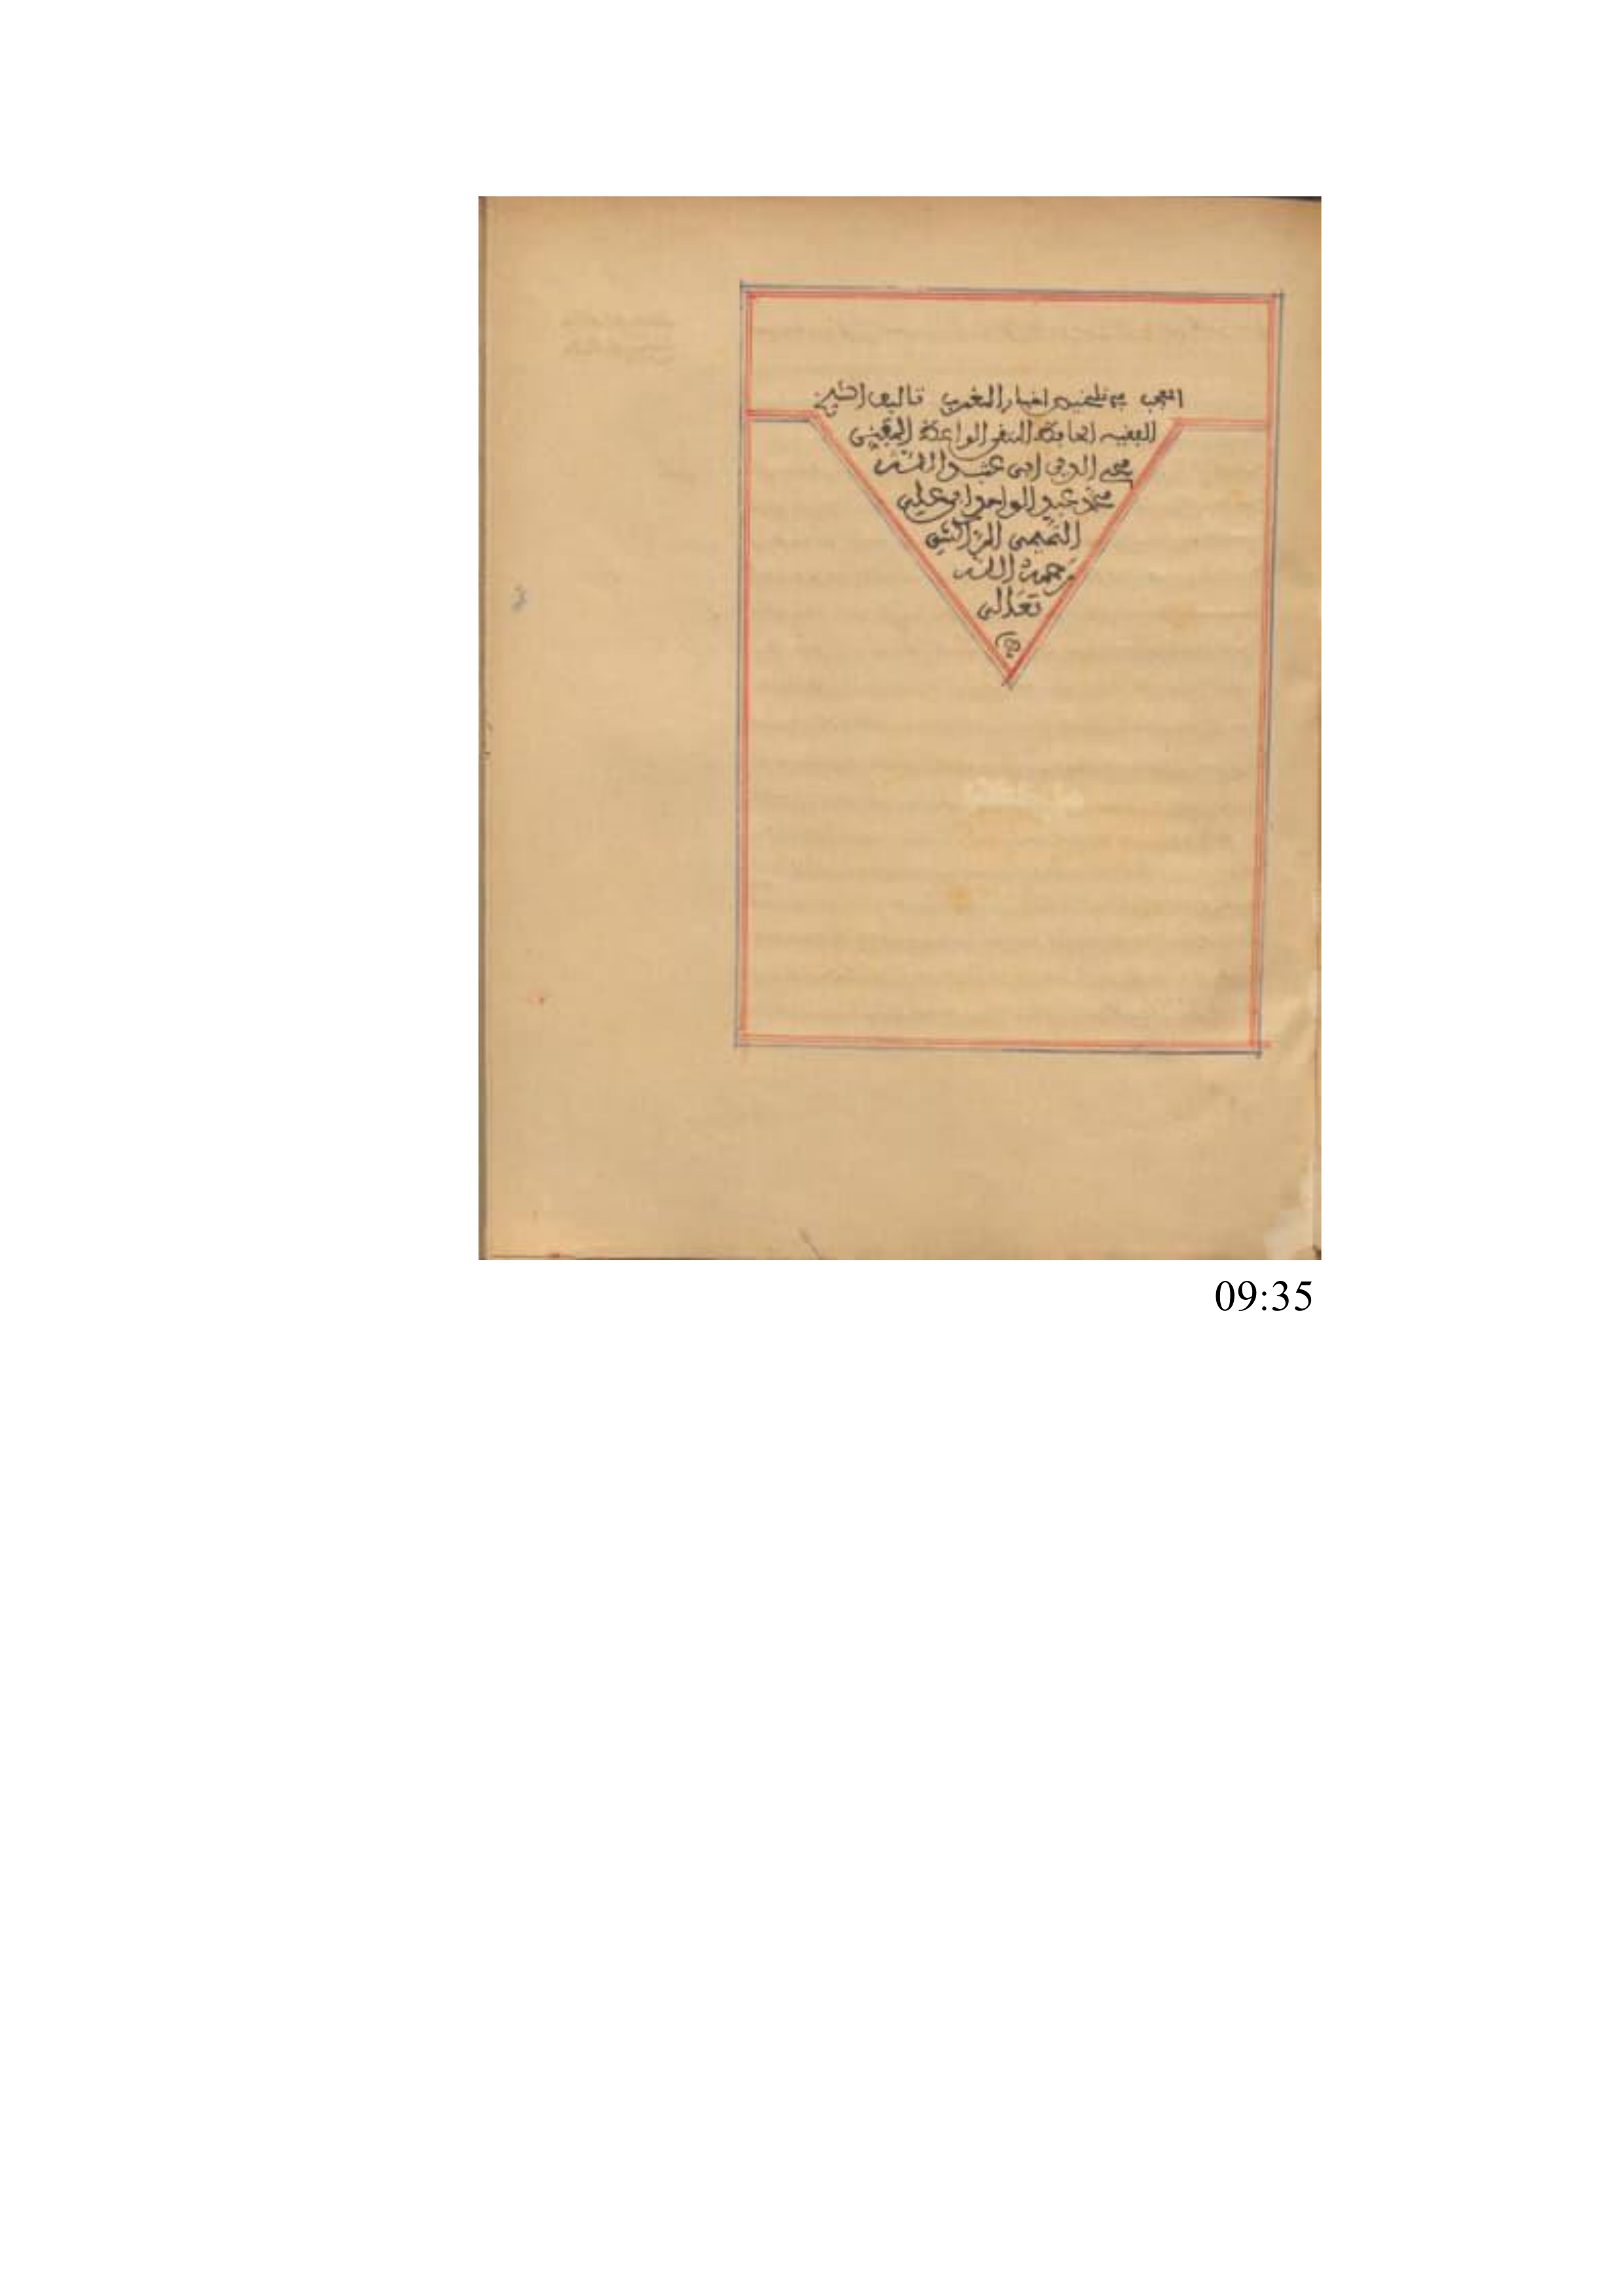 المعجب في تلخيص اخبار المغرب تاليف الشيخ
الفقيه الحافظ المتقن الواعظ
محي الدين ابي عبد الله
محمد عبد الواحد ابن علي
التميمي المراكشي
رحمه الله
تعالى
09:35